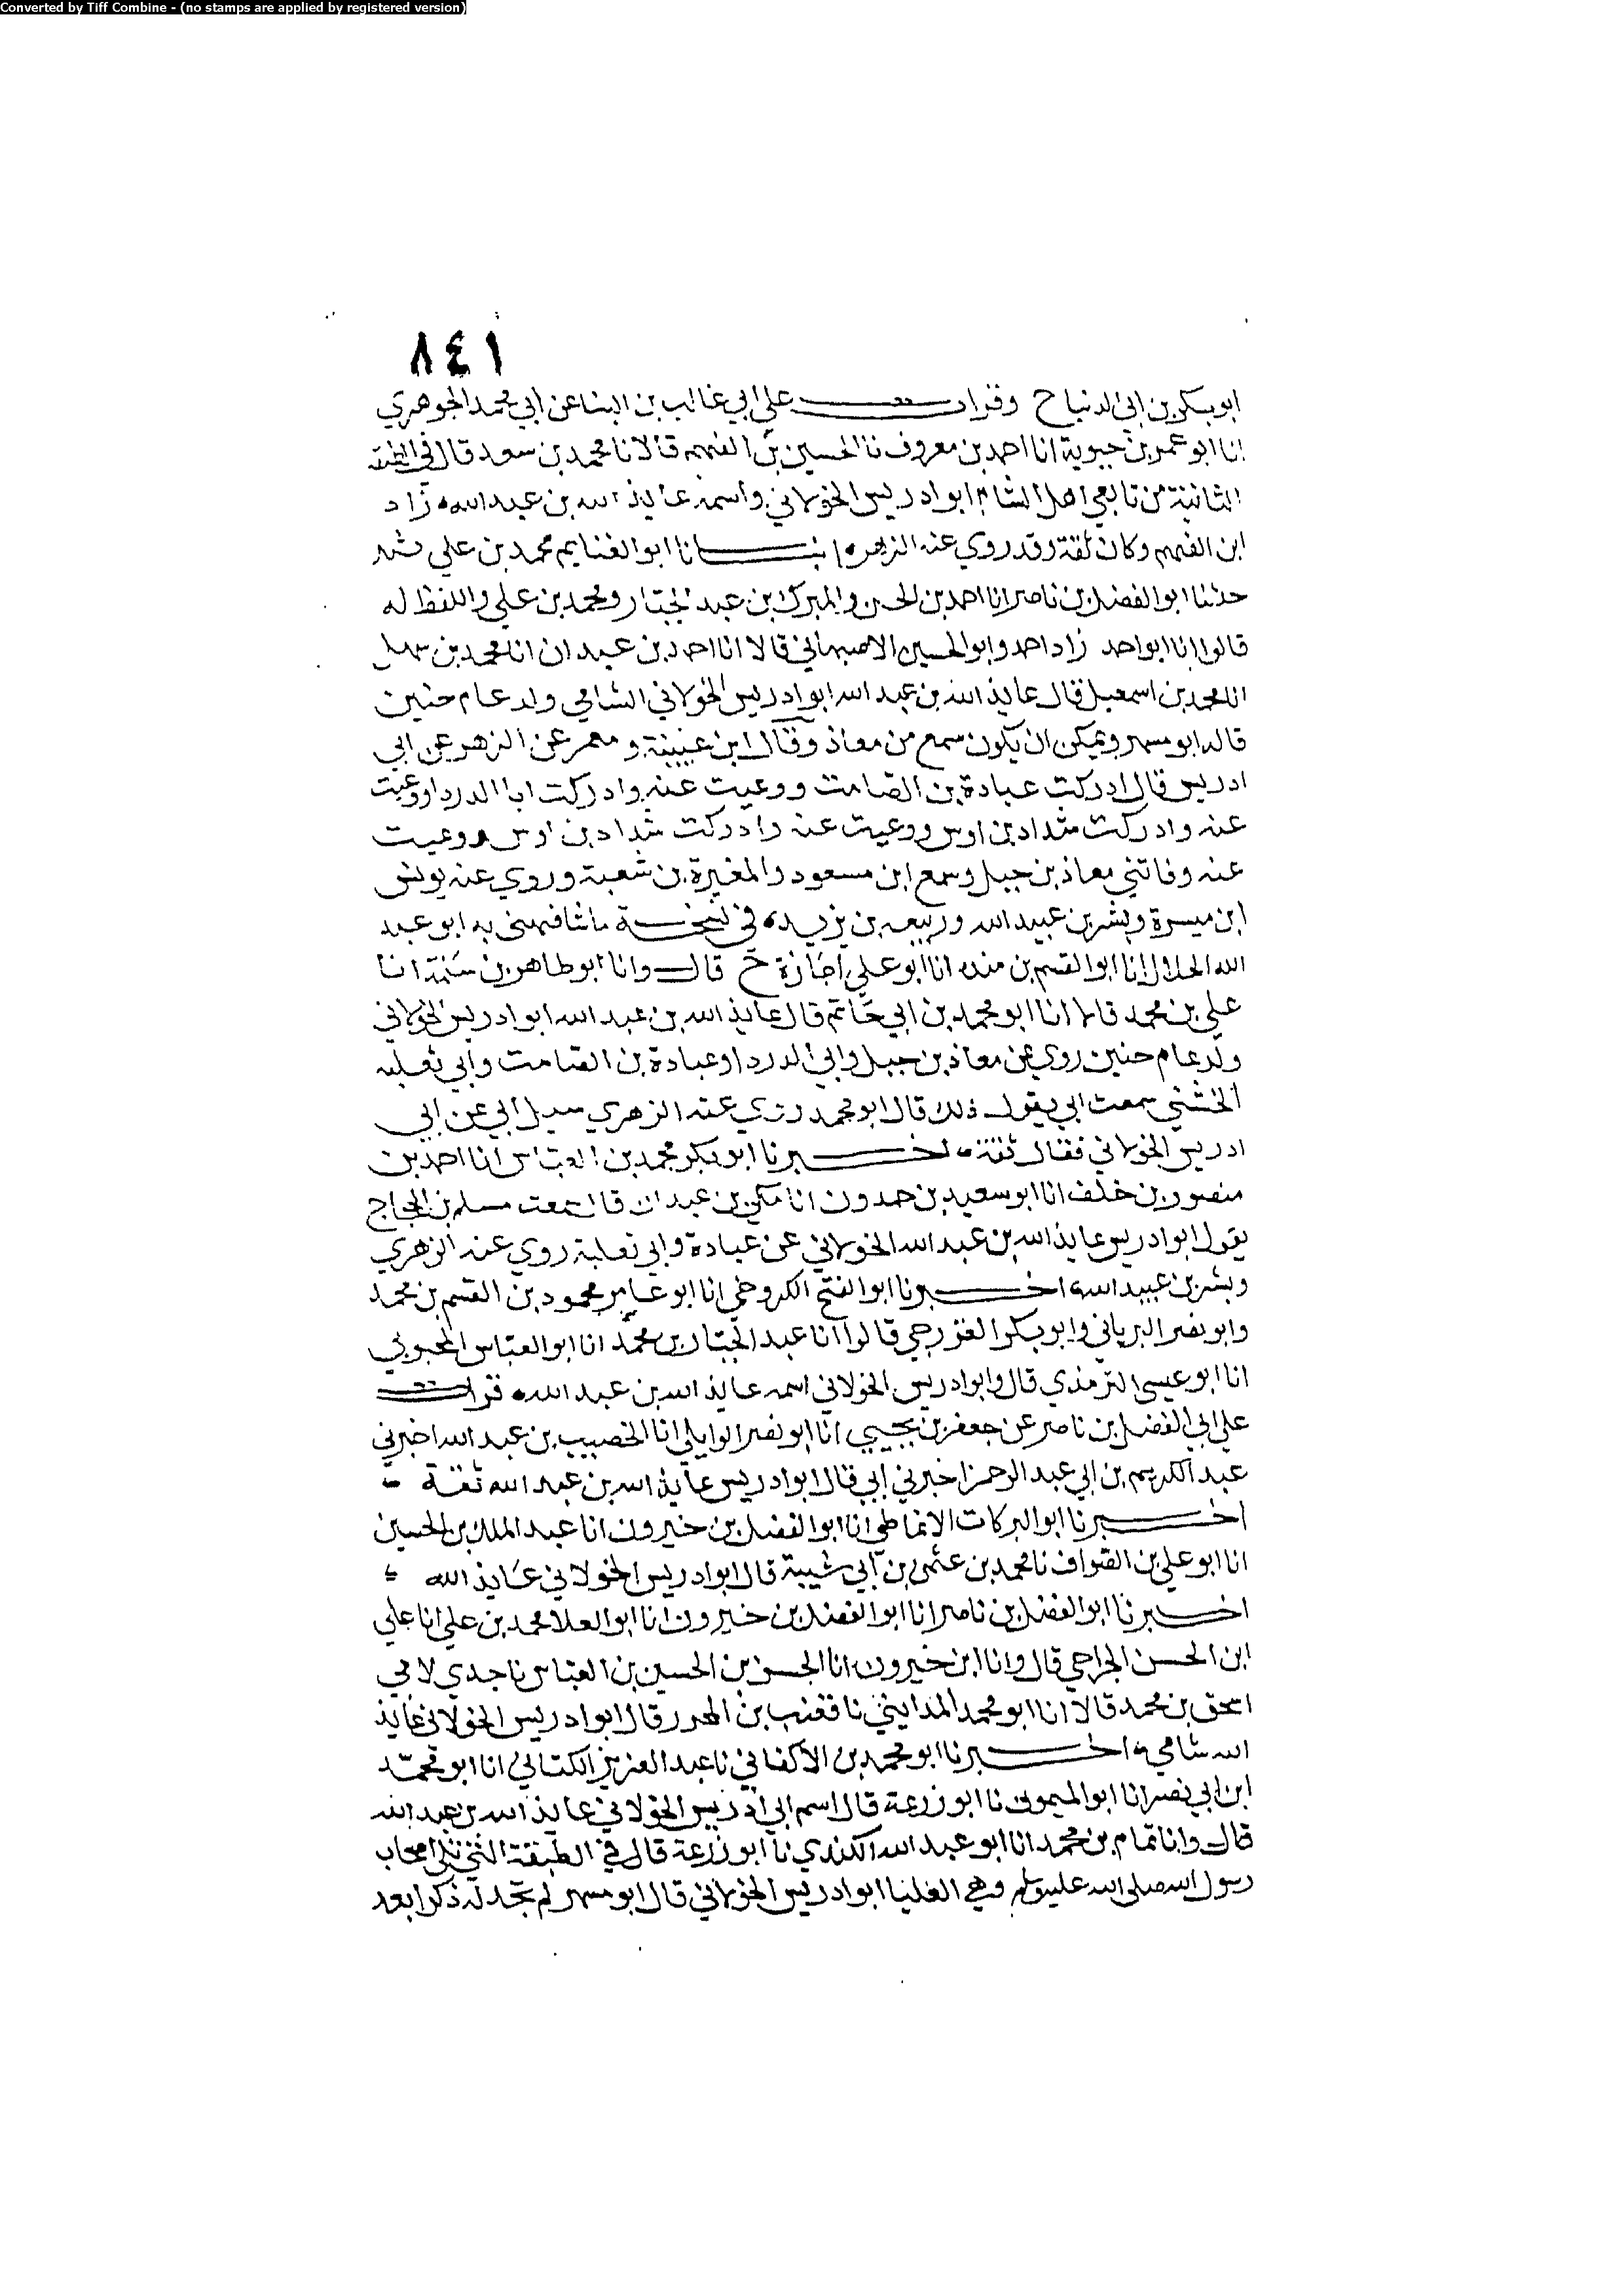 Converted by Tiff Combine - (no stamps are applied by registered version)
٨٤١
ابو بكر بن ابي الدنيا ح وقرات على ابي غالب بن البنا عن ابي محمد الجوهري
انا ابو عمر بن حيوية انا احمد بن معروف نا الحسين بن الفهم قالا نا محمد بن سعد قال في الطبقة
الثانية من تابعي اهل الشام ابو ادريس الخولاني واسمه عايذ الله بن عبد الله زاد
ابن الفهم وكان ثقة وقد روي عنه الزهر انبانا ابو الغنايم محمد بن علي ثم
حدثنا ابو الفضل بن ناصر انا احمد بن الحسن والمبرك بن عبد الجبار ومحمد بن علي واللفظ له
قالوا انا ابو احمد زاد احمد وابو الحسين الاصبهاني قالا انا احمد بن عبدان انا محمد بن سهل
انا محمد بن اسمعيل قال عايذ الله بن عبد الله ابو ادريس الخولاني الشامي ولد عام حنين
قاله ابو مسهر ويمكن ان يكون سمع من معاذ وقال ابن عيينة ومعمر عن الزهر عن ابي
ادريس قال ادركت عبادة بن الصامت ووعيت عنه وادركت ابا الدردا ووعيت
عنه وادركت شداد بن اوس ووعيت عنه وادركت شداد بن اوس ووعيت
عنه وفاتني معاذ بن جبل وسمع ابن مسعود والمغيرة بن شعبة وروي عنه يونس
ابن ميسرة وبشر بن عبيد الله وربيعه بن يزيد في نسخة ما شافهني به ابو عبد
الله الخلال انا ابو القسم بن منده انا ابو علي اجازة ح قال وانا ابو طاهر بن سلمة انا
علي بن محمد قالا انا ابو محمد بن ابي حاتم قال عايذ الله بن عبد الله ابو ادريس الخولاني
ولد عام حنين روي عن معاذ بن جبل وابي الدردا وعبادة بن الصامت وابي ثعلبه
الخشني سمعت ابي يقول ذلك قال ابو محمد روي عنه الزهري سيل ابي عن ابي
ادريس الخولاني فقال ثقة اخبرنا ابو بكر محمد بن العباس انا احمد بن
منصور بن خلف انا ابو سعيد بن حمدون انا مكي بن عبدان قال سمعت مسلم بن الحجاج
يقول ابو ادريس عايذ الله بن عبد الله الخولاني عن عبادة وابي ثعلبة روي عنه الزهري
وبشر بن عبيد الله اخبرنا ابو الفتح الكروخي انا ابو عامر محمود بن القسم بن محمد
وابو نصر الترياقي وابو بكر الغورجي قالوا انا عبد الجبار بن محمد انا ابو العباس المحبوبي
انا ابو عيسى الترمذي قال وابو ادريس الخولاني اسمه عايذ الله بن عبد الله قرات
على ابي الفضل بن ناصر عن جعفر بن يحيي انا ابو نصر الوايلي انا الخصيب بن عبد الله اخبرني
عبد الكريم بن ابي عبد الرحمن اخبرني ابي قال ابو ادريس عايذ الله بن عبد الله ثقة
اخبرنا ابو البركات الانماطي انا ابو الفضل بن خيرون انا عبد الملك بن الحسين
انا ابو علي بن الصواف نا محمد بن عثمن بن ابي شيبة قال ابو ادريس الخولاني عايذ الله
اخبرنا ابو الفضل بن ناصر انا ابو الفضل بن خيرون انا ابو العلا محمد بن علي انا علي
ابن الحسن الجراحي قال وانا ابن خيرون انا الحسن بن الحسين بن العباس نا جدي لامي
اسحق بن محمد قالا انا ابو محمد المدايني نا قعنب بن المحرر قال ابو ادريس الخولاني عايذ
الله شامي اخبرنا ابو محمد بن الاكفاني نا عبد العزيز الكتاني انا ابو محمد
ابن ابي نصر انا ابو الميمون نا ابو زرعة قال اسم ابي ادريس الخولاني عايذ الله بن عبد الله
قال وانا تمام بن محمد انا ابو عبد الله الكندي نا ابو زرعة قال في الطبقة التي تلي اصحاب
رسول الله صلى الله عليه وسلم وهي العليا ابو ادريس الخولاني قال ابو مسهر لم نجد له ذكرا بعد